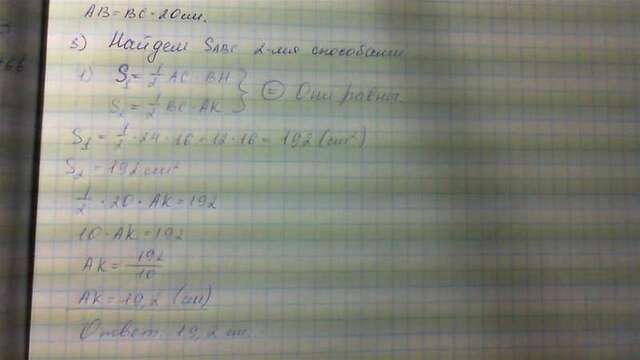 AB = BC - 20 см.
3) Найдем SABC 2-мя способами
1) S₁ = 1/2 AC · BH
S₂ = 1/2 BC · AK } = Они равны.
S₁ = 1/2 · 24 · 16 = 12 · 16 = 192 (см²)
S₂ = 192 см²
1/2 · 20 · AK = 192
10 · AK = 192
AK = 192/10
AK = 19,2 (см)
Ответ: 19,2 см.